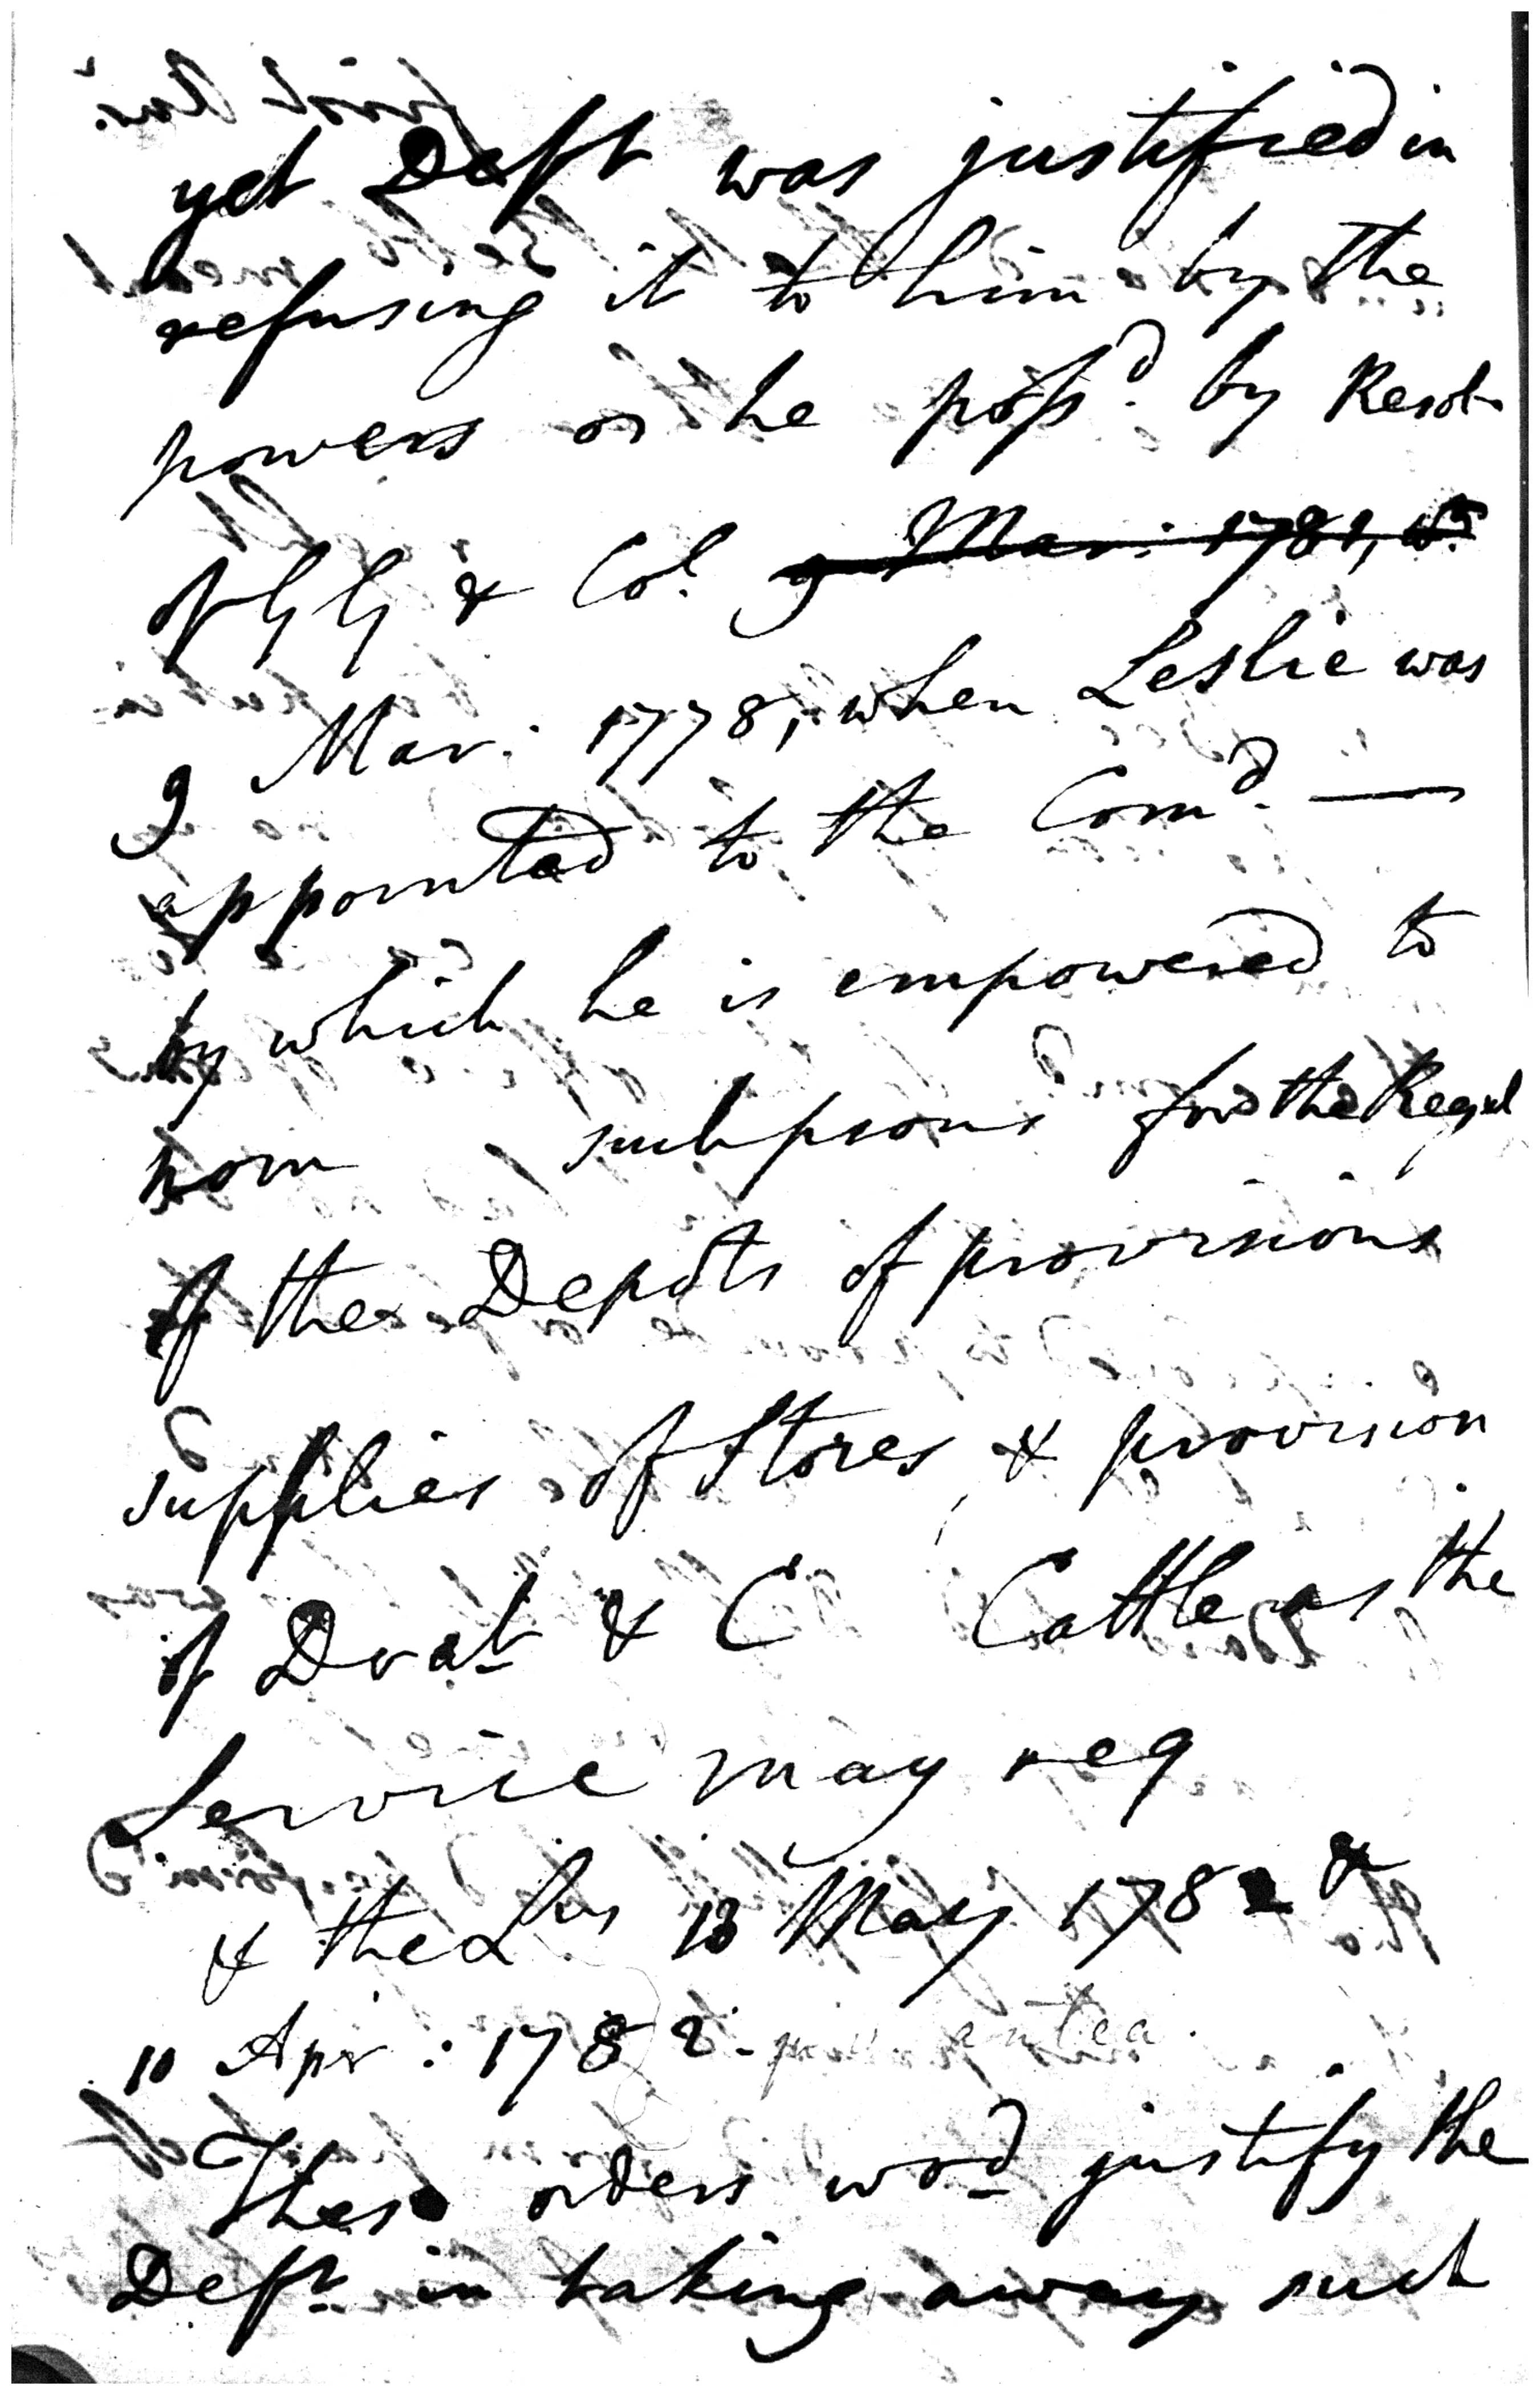 yet Deft was justified in
refusing it to him by the
powers as he poss'd. by Resol
of GG & Col.
9 Mar: 1778, when Leslie was
appointed to the Com'd. —
by which he is empowered to
nom such psons for the Regul
of the Depôts of provisions
supplies of Stores, & provision
of Drat & C Cattle as the
Service may req
& the Lrs 13 May 1782 &
10 Apr: 1782 - antea.
These orders wod justify the
Deft. in taking away such